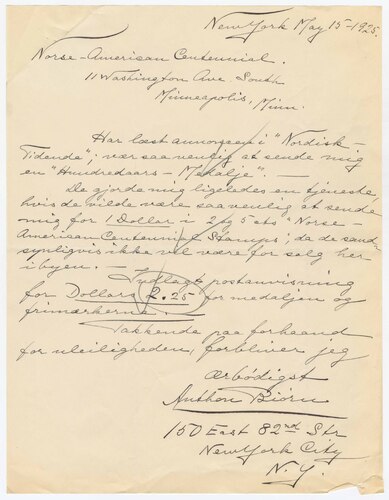 New York May 15-1925.
Norse-American Centennial.
11 Washington Ave South
Minneapolis, Minn.
Har læst annoncen i "Nordisk-
Tidende"; vær saa venlig at sende mig
en "Hundredaars-Medalje". —
De gjorde mig ligeledes en tjeneste,
hvis de vilde være saa venlig at sende
mig for 1 Dollar i 2 og 5 cts "Norse-
American Centennial Stamps", da de sand-
synligvis ikke vil være for salg her
i byen. —
postanvisning
for Dollars 2.25 for medaljen og
frimærkerne. —
Takkende paa forhaand
for uleiligheden, forbliver jeg
ærbødigst
Anthon Biørn
150 East 82nd Str
New York City
N.Y.